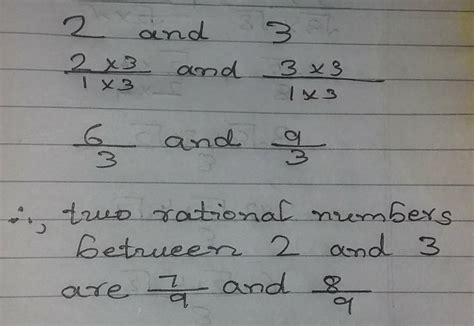 2 and 3
2 x 3 / 1 x 3 and 3 x 3 / 1 x 3
6/3 and 9/3
∴, two rational numbers
between 2 and 3
are 7/9 and 8/9